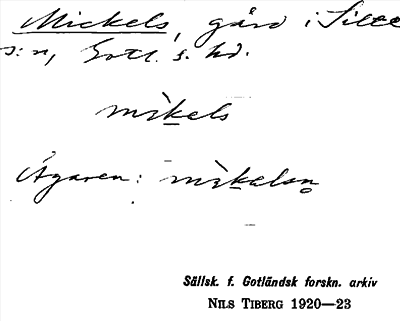 Mickels, gård i Silte
s:n, Gotl. s. hd.
mìkels
Ägaren: mìkelsn̥
Sällsk. f. Gotländsk forskn. arkiv
NILS TIBERG 1920—23